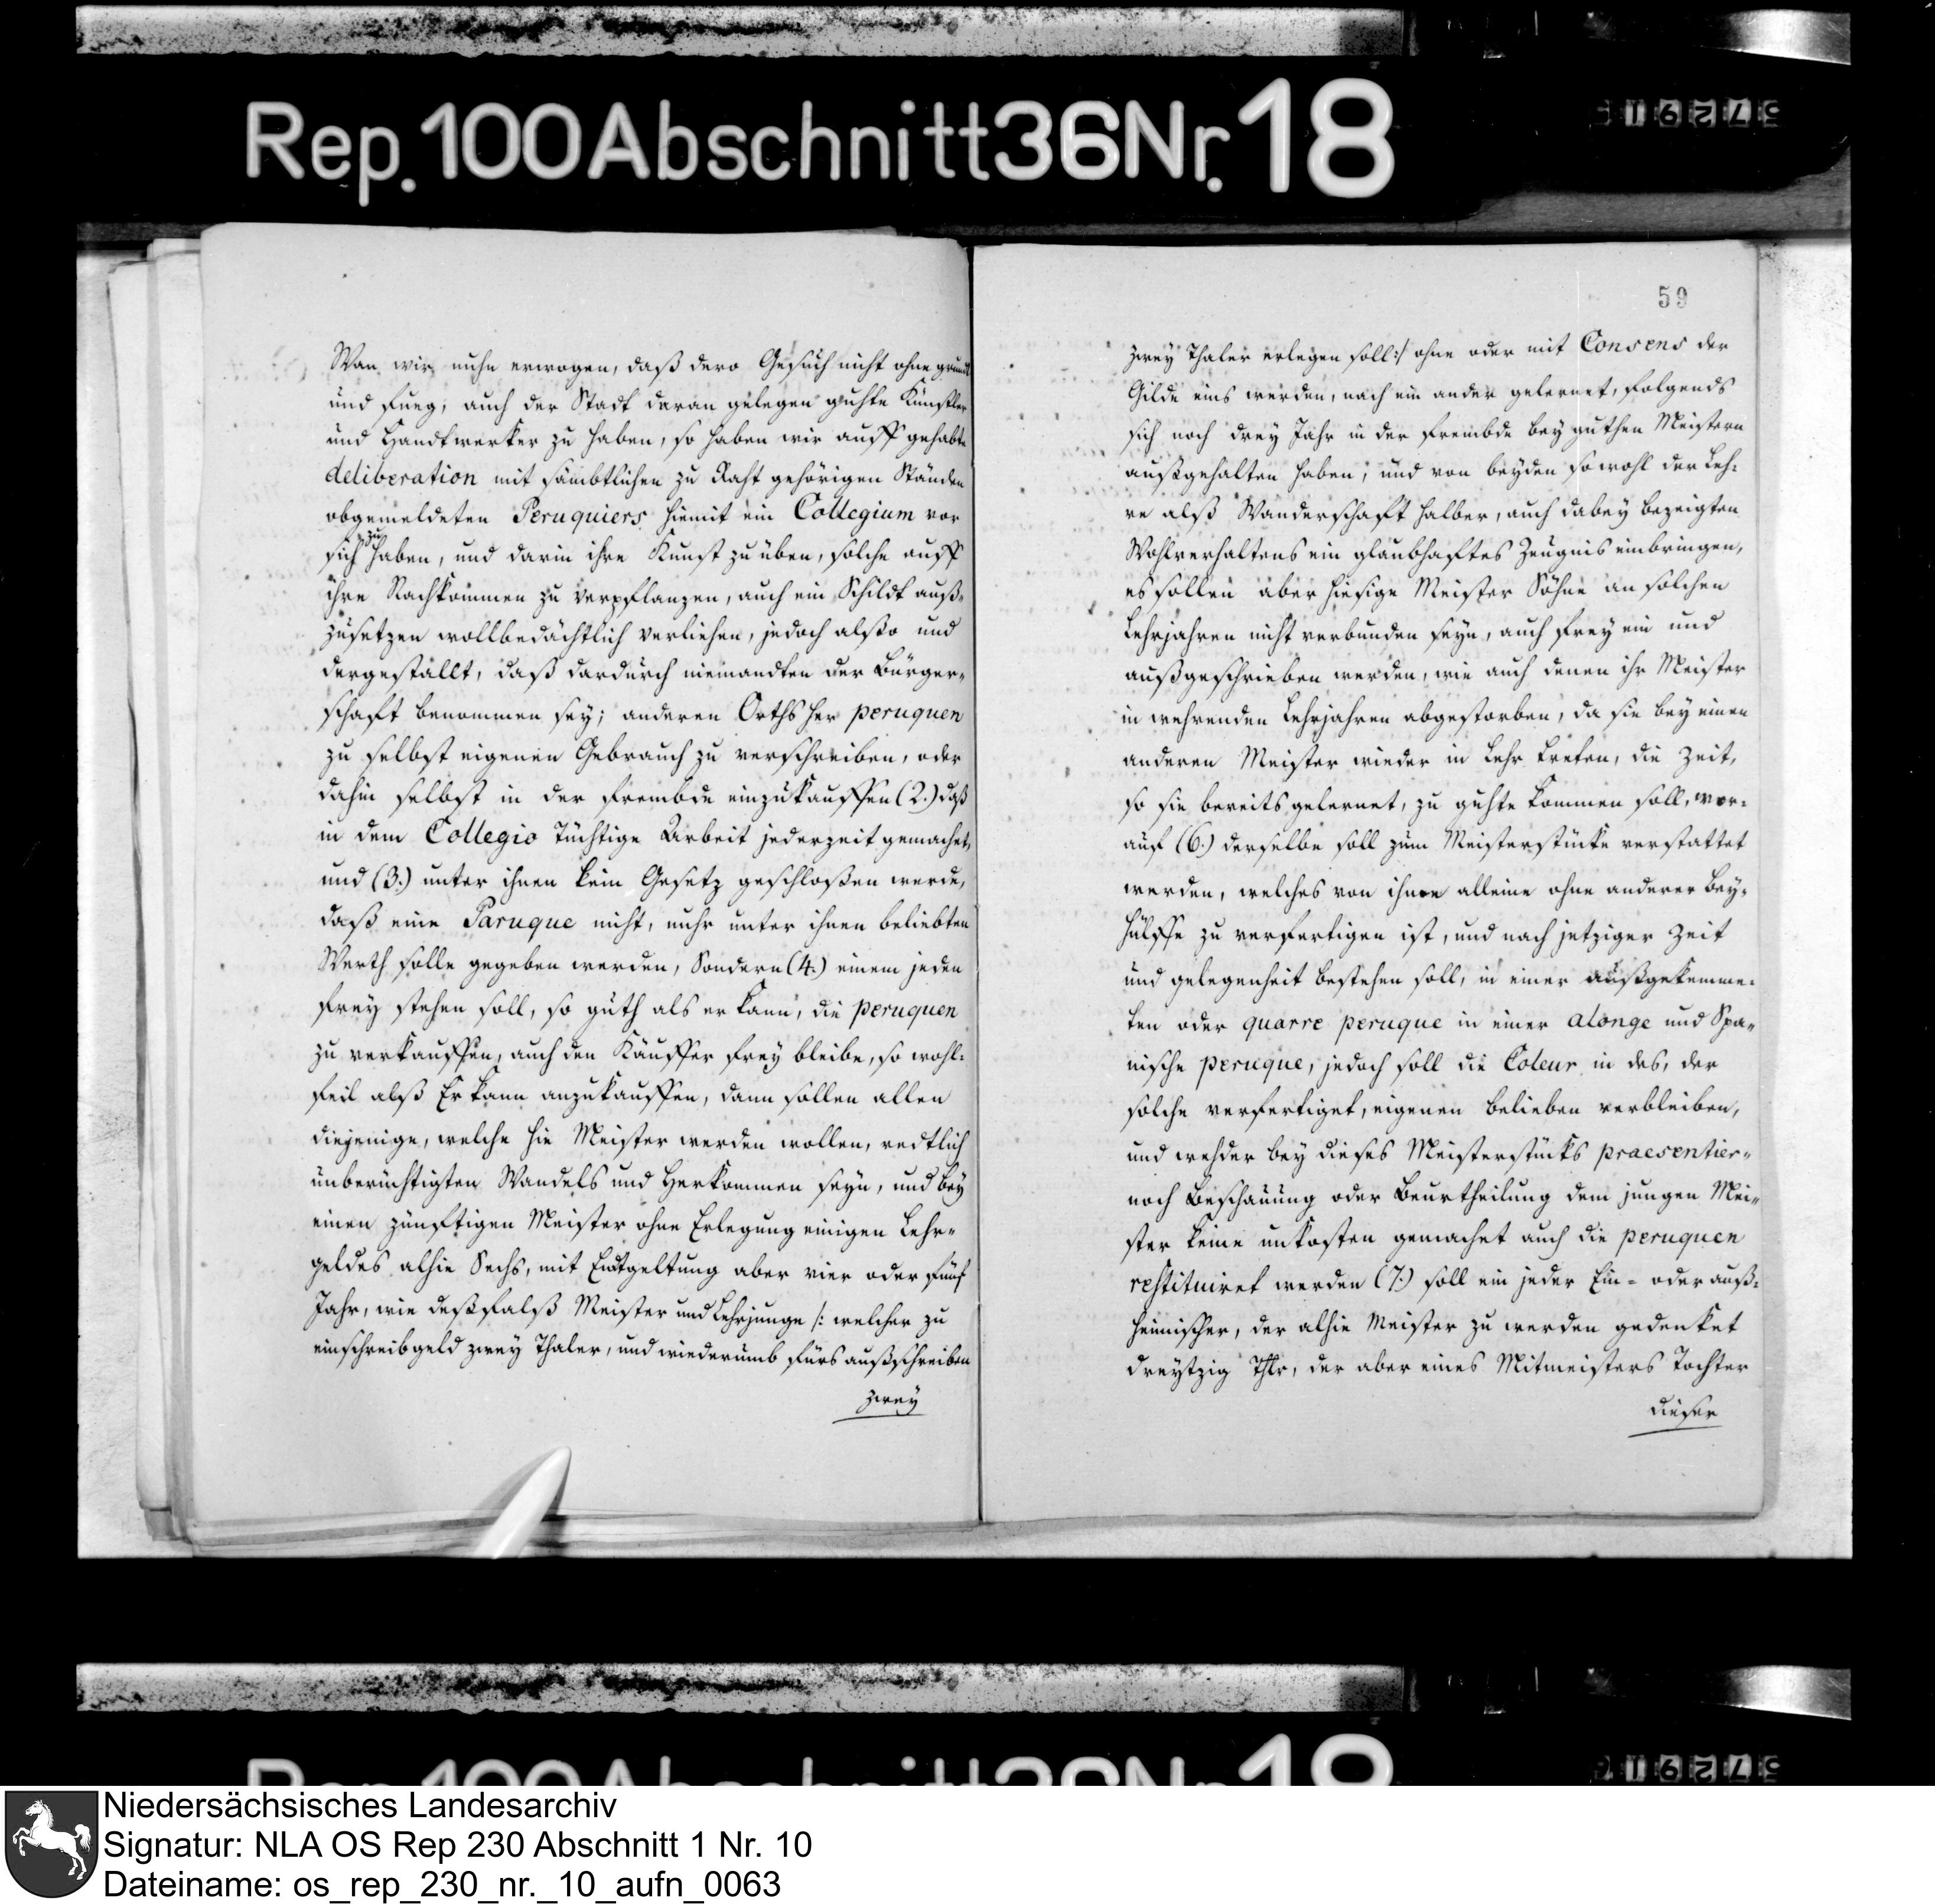 Rep. 100 Abschnitt 36 Nr. 18
Wan wir nuhn erwogen, daß dero Gesuch nicht ohne grund
und fueg, auch der Stadt daran gelegen guhte Künstler
und Handtwerker zu haben, so haben wir auff gehabte
deliberation mit sämbtlichen zu Raht gehörigen Ständen
obgemeldeten Peruquiers hiemit ein Collegium vor
sich zu haben, und darin ihre Kunst zu üben, solche auff
ihre Nachkommen zu verpflanzen, auch ein Schildt auß-
zusetzen wollbedächtlich verliehen, jedoch alßo und
dergestallt, daß dardurch niemandten der Bürger-
schaft benommen sey; anderen Orths her peruquen
zu selbst eigenen Gebrauch zu verschreiben, oder
dahin selbst in der frembde einzukauffen (2.) daß
in dem Collegio tüchtige Arbeit jederzeit gemachet,
und (3.) unter ihnen kein Gesetz geschloßen werde,
daß eine Paruque nicht, nuhr unter ihnen beliebten
Werth solle gegeben werden, Sondern (4.) einem jeden
frey stehen soll, so guth als er kann, die peruquen
zu verkauffen, auch den Käuffer frey bleibe, so wohl-
feil alß Er kann anzukauffen, dann sollen allen
diejenige, welche hie Meister werden wollen, redtlich
unberüchtigten Wandels und Herkommen seyn, und bey
einen zünftigen Meister ohne Erlegung einigen Lehr-
geldes alhie Sechs, mit Entgeltung aber vier oder fünf
Jahr, wie deßfalß Meister und Lehrjunge /: welcher zu
einschreibgeld zwey Thaler, und wiederumb fürs außschreiben
zwey
59
zwey Thaler erlegen soll :/ ohne oder mit Consens der
Gilde eins werden, nach ein ander gelernet, folgends
sich noch drey Jahr in der frembde bey guthen Meistern
außgehalten haben, und von beyden sowohl der Leh-
re alß Wanderschaft halber, auch dabey bezeigten
Wohlverhaltens ein glaubhaftes Zeugnis einbringen,
es sollen aber hiesige Meister Söhne an solchen
Lehrjahren nicht verbunden seyn, auch frey ein und
außgeschrieben werden, wie auch denen ihr Meister
in wehrenden Lehrjahren abgestorben, da sie bey einen
anderen Meister wieder in Lehr tretten, die Zeit,
so sie bereits gelernet, zu guhte kommen soll, wor-
auf (6.) derselbe soll zum Meisterstücke verstattet
werden, welches von ihme alleine ohne anderer Bey-
hülffe zu verfertigen ist, und nach jetziger Zeit
und gelegenheit bestehen soll, in einer außgekemme-
ten oder quarre peruque in einer alonge und Spa-
nische peruque, jedoch soll die Coleur in des, der
solche verfertiget, eigenen belieben verbleiben,
und wehder bey dieses Meisterstücks praesentier-
noch Beschauung oder Beurtheilung dem jungen Mei-
ster keine unkosten gemachet auch die peruquen
restituiret werden (7.) soll ein jeder Ein- oder auß-
heimischer, der alhie Meister zu werden gedenket
dreytzig Thlr, der aber eines Mitmeisters Tochter
dieser
Niedersächsisches Landesarchiv
Signatur: NLA OS Rep 230 Abschnitt 1 Nr. 10
Dateiname: os_rep_230_nr._10_aufn_0063